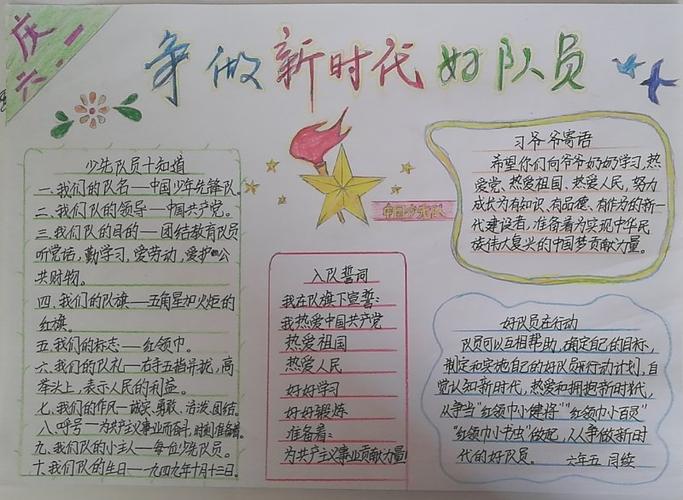 庆
六·一
争做新时代好队员
少先队员十知道
一、我们的队名——中国少年先锋队。
二、我们队的领导——中国共产党。
三、我们队的目的——团结教育队员
听党话，勤学习，爱劳动，爱护公
共财物。
四、我们的队旗——五角星加火炬的
红旗。
五、我们的标志——红领巾。
六、我们的队礼——右手五指并拢，高
举头上，表示人民的利益。
七、我们的作风——诚实、勇敢、活泼、团结。
八、呼号——为共产主义事业而奋斗，时刻准备着。
九、我们队的小主人——每位少先队员。
十、我们队的生日——一九四九年十月十三日。
中国少先队
入队誓词
我在队旗下宣誓：
我热爱中国共产党
热爱祖国
热爱人民
好好学习
好好锻炼
准备着：
为共产主义事业贡献力量
习爷爷寄语
希望你们向爷爷奶奶学习，热
爱党、热爱祖国、热爱人民，努力
成长为有知识、有品德、有作为的新一
代建设者，准备着为实现中华民
族伟大复兴的中国梦贡献力量。
好队员在行动
队员可以互相帮助，确定自己的目标，
制定和实施自己的好队员行动计划，自
觉认知新时代，热爱和拥抱新时代，
从争当“红领巾小健将”“红领巾小百灵”
“红领巾小书虫”做起，人人争做新时
代的好队员。 六年五